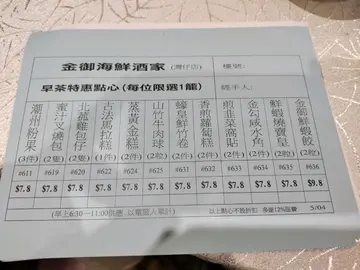 金御海鮮酒家 (灣仔店) 檯號:
早茶特惠點心 (每位限選1籠) 經手人:
潮州粉果 (3件) #611 $7.8
蜜汁叉燒包 (2隻) #619 $7.8
北菇雞包仔 (2隻) #620 $7.8
古法馬拉糕 (2件) #622 $7.8
蒸黃金糕 (2件) #624 $7.8
山竹牛肉球 (2粒) #625 $7.8
蠔皇鮮竹卷 (2件) #631 $7.8
香煎蘿蔔糕 (2件) #632 $7.8
煎韭菜窩貼 (2件) #633 $7.8
金勾咸水角 (2件) #634 $7.8
鮮蝦燒賣皇 (2粒) #635 $7.8
金御鮮蝦餃 (2粒) #636 $9.8
(早上6:30－11:00供應 以電腦入單計) 以上點心不設折扣 另加12%設費 5/04